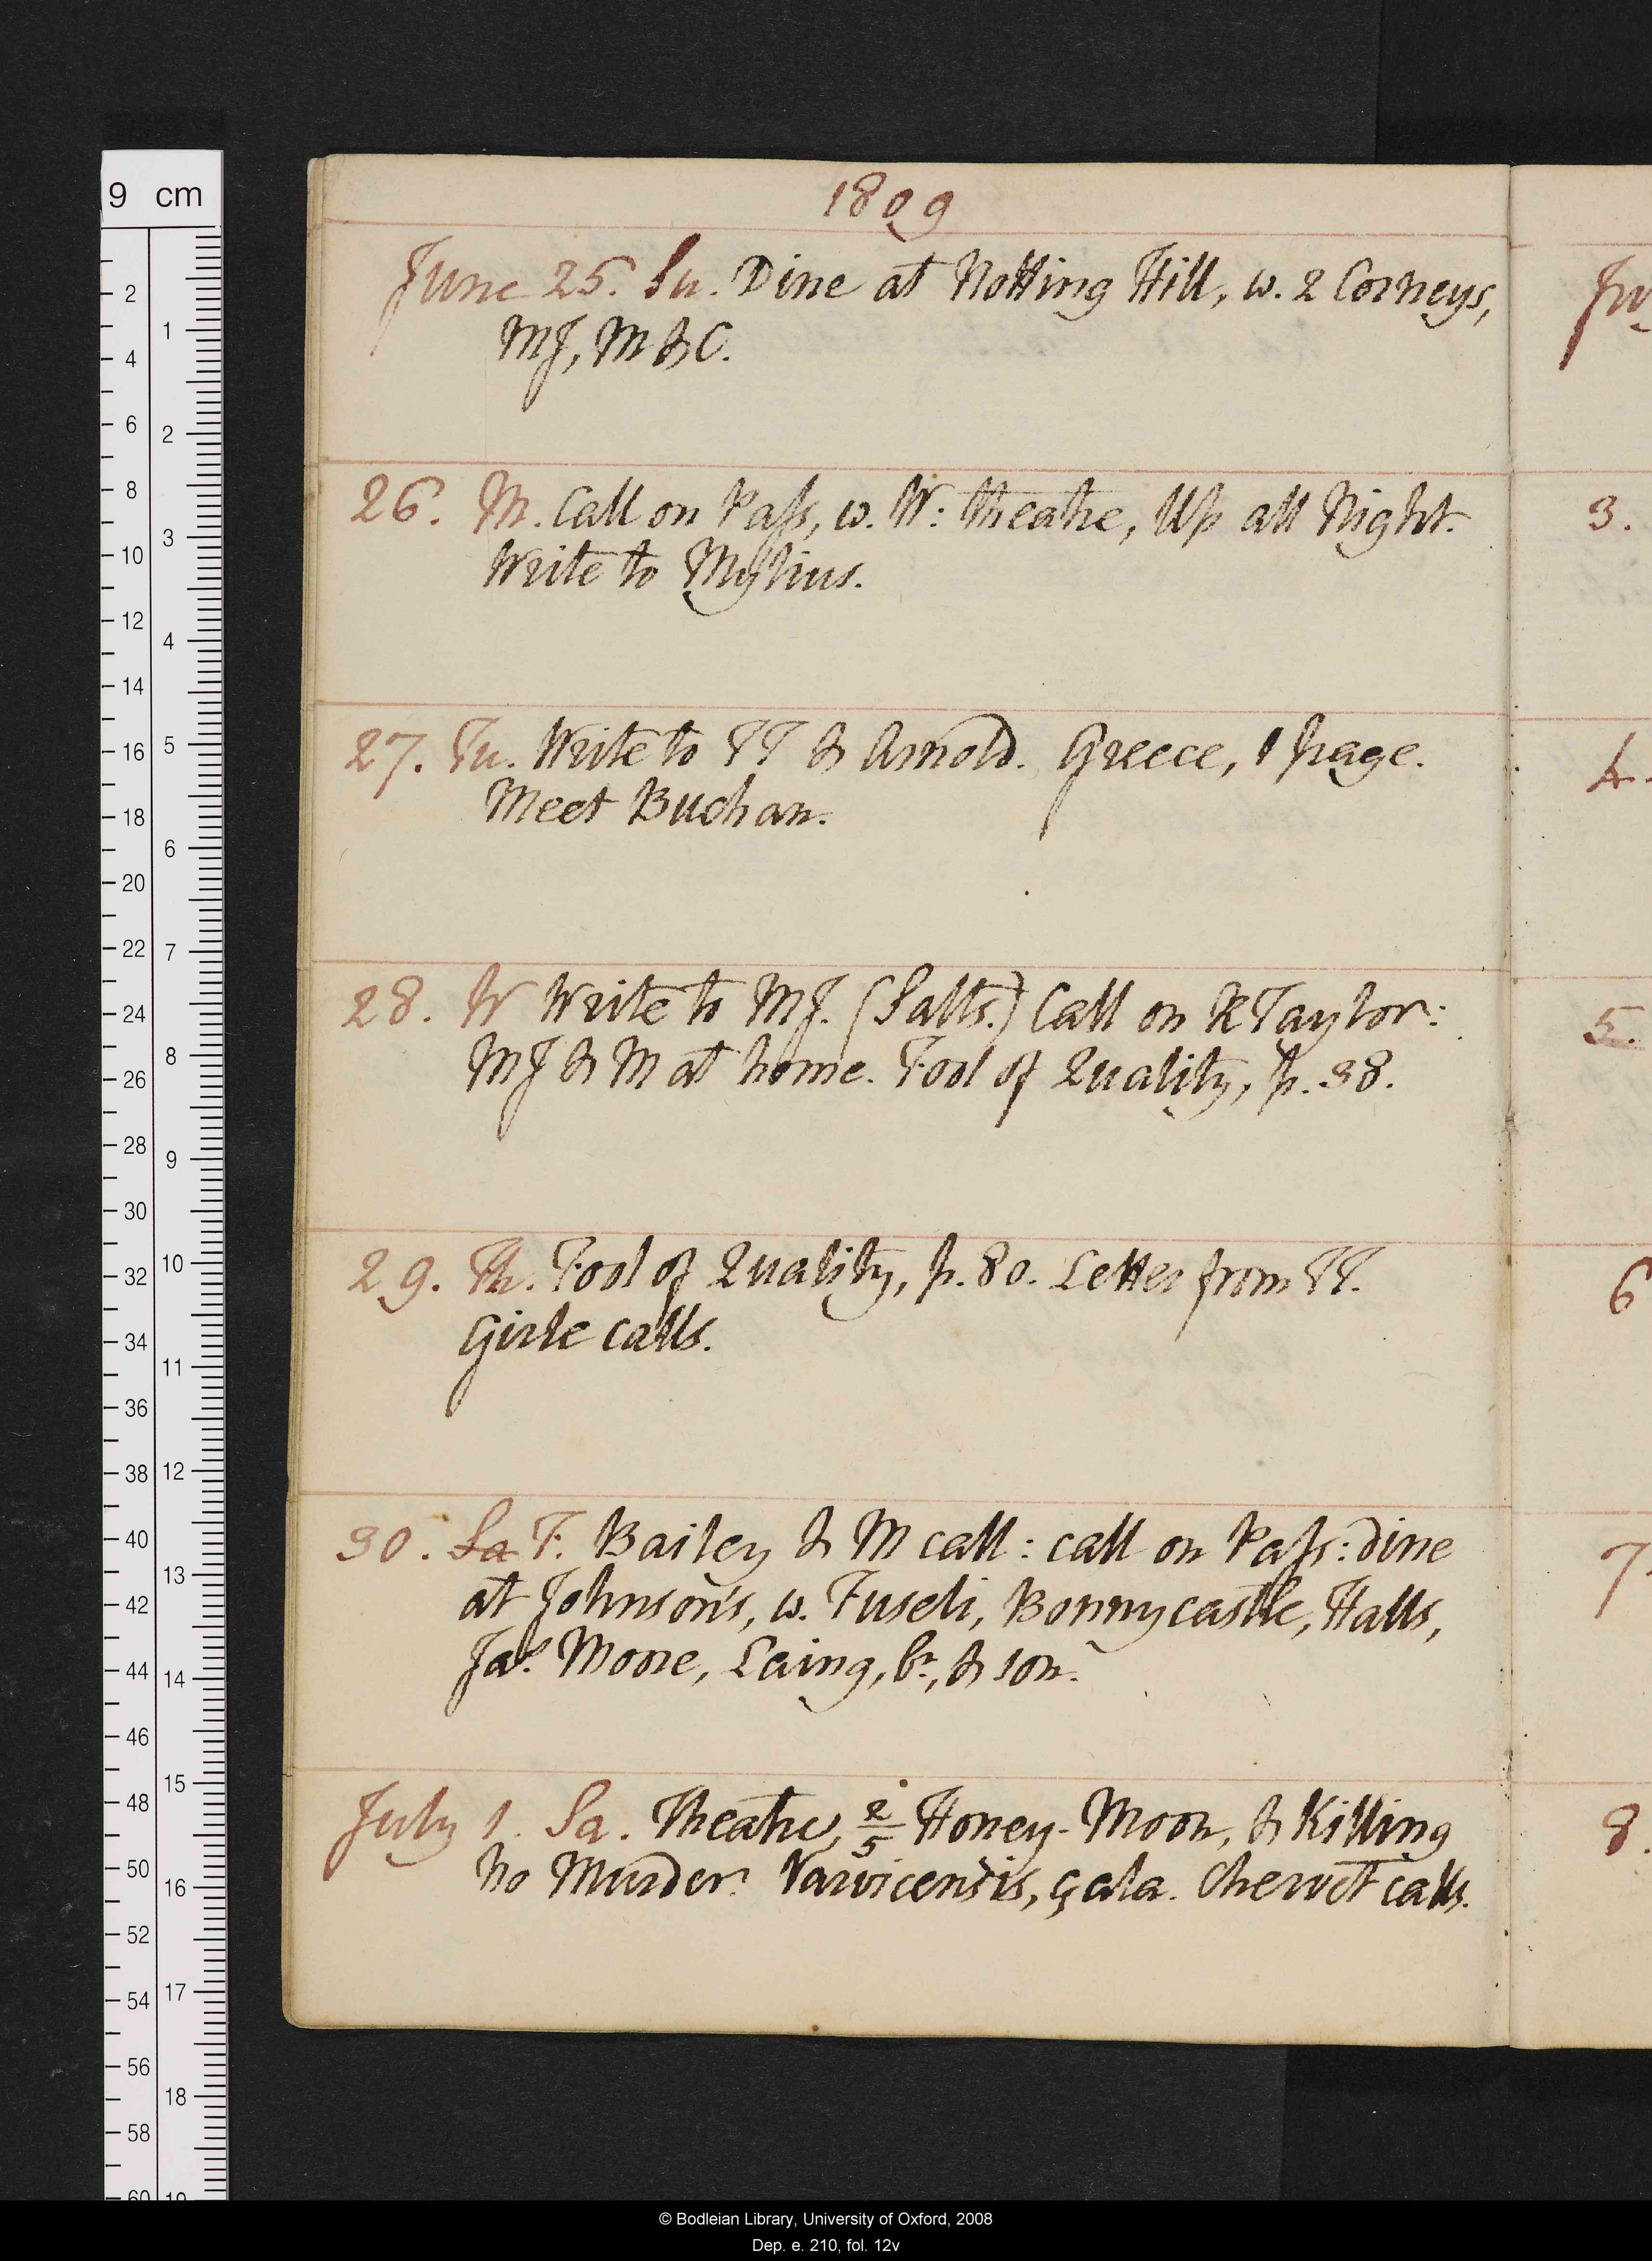 1809
June 25. Su. Dine at Notting Hill, w. 2 Corneys,
MJ, M & C.
26. M. Call on Pass, w. W: theatre, Up all Night.
Write to Mylius.
27. Tu. Write to TT & Arnold. Greece, 1 page.
Meet Buchan.
28. W Write to MJ. (Salts.) Call on R Taylor:
MJ & M at home. Fool of Quality, p. 38.
29. Th. Fool of Quality, p. 80. Letter from TT.
Girle calls.
30. Sa F. Bailey & M call: call on Pass: dine
at Johnson's, w. Fuseli, Bonnycastle, Halls,
Jas. Moore, Laing, br, & son.
July 1. Sa. Theatre, 2/5 Honey-Moon, & Killing
no Murder. Varvicensis, çala. Chervet calls.
Ju
3.
4.
5.
6
7.
8.
9 cm
2
4
6
8
10
12
14
16
18
20
22
24
26
28
30
32
34
36
38
40
42
44
46
48
50
52
54
56
58
60
1
2
3
4
5
6
7
8
9
10
11
12
13
14
15
16
17
18
19
© Bodleian Library, University of Oxford, 2008
Dep. e. 210, fol. 12v